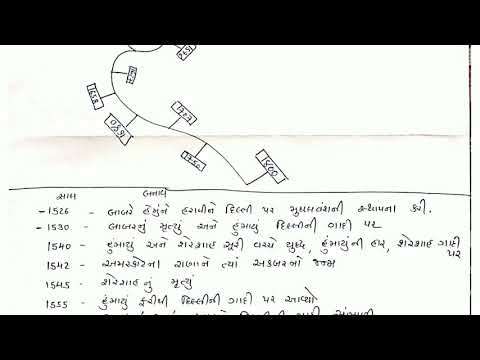 1674
1658
1650
1707
1760
1800
સાલ બનાવ
-1526 - બાબરે હેમુને હરાવીને દિલ્લી પર મુઘલવંશની સ્થાપના કરી.
-1530 - બાબરનું મૃત્યું અને હુંમાયું દિલ્લીની ગાદી પર
1540 - હુંમાયું અને શેરશાહ સૂરી વચ્ચે યુધ્ધ, હુંમાયુંની હાર, શેરશાહ ગાદી
પર
1542 - અમરકોટના રાણાને ત્યાં અકબરનો જન્મ
1545 - શેરશાહનું મૃત્યું
1555 - હુંમાયું ફરીથી દિલ્લીની ગાદી પર આવ્યો